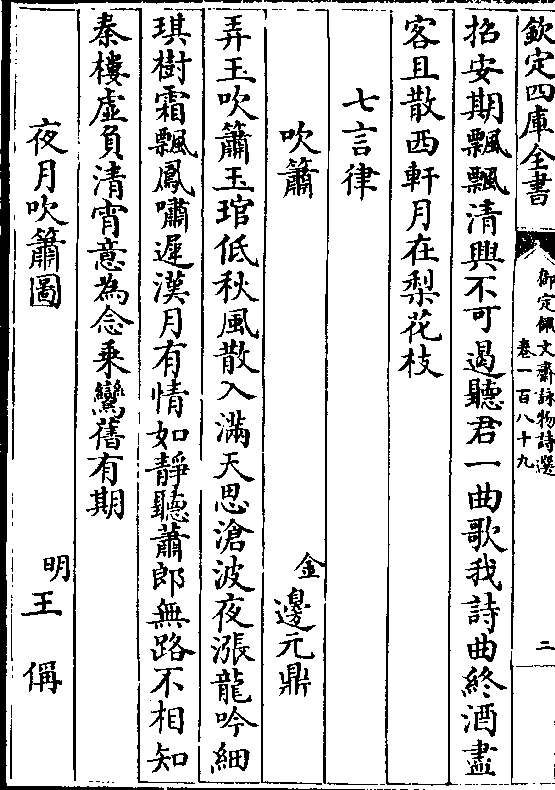 欽定四庫全書
御定佩文齋詠物詩選
卷一百八十九
二
招安期飄飄清興不可遏聽君一曲歌我詩曲終酒盡
客且散西軒月在梨花枝
七言律
吹簫
金 邊元鼎
弄玉吹簫玉琯低秋風散入滿天思滄波夜漲龍吟細
琪樹霜飄鳳嘯遲漢月有情如靜聽蕭郎無路不相知
秦樓虛負清宵意為念乘鸞舊有期
夜月吹簫圖
明 王偁